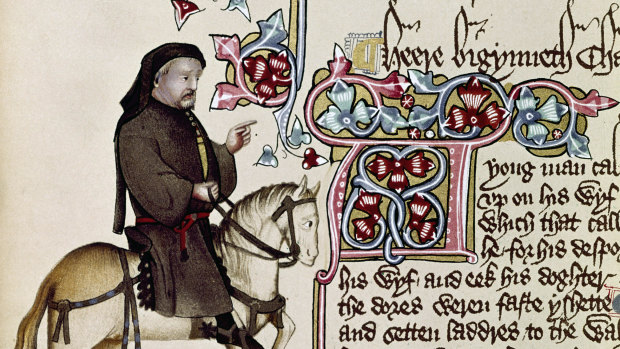 Heere bigynneth Cha
A yong man cal
vp on his wyf
Which that call
he for his despor
his wyf and eek his doghter
the dores weren faste yshette
and setten laddres to the wal